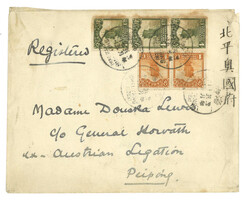 Registered
Madame Douska Lewis
c/o General Horvath
Austrian Legation
Peiping
北平奧國府